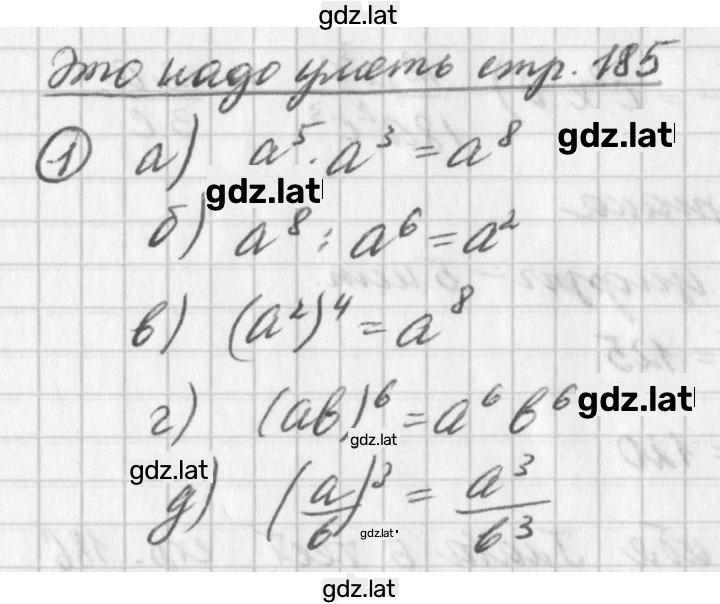 gdz.lat
Это надо уметь стр. 185
① а) a⁵ · a³ = a⁸ gdz.lat
gdz.lat
б) a⁸ : a⁶ = a²
в) (a²)⁴ = a⁸
г) (ab)⁶ = a⁶ b⁶ gdz.lat
gdz.lat
gdz.lat
д) (a/b)³ = a³/b³
gdz.lat
gdz.lat